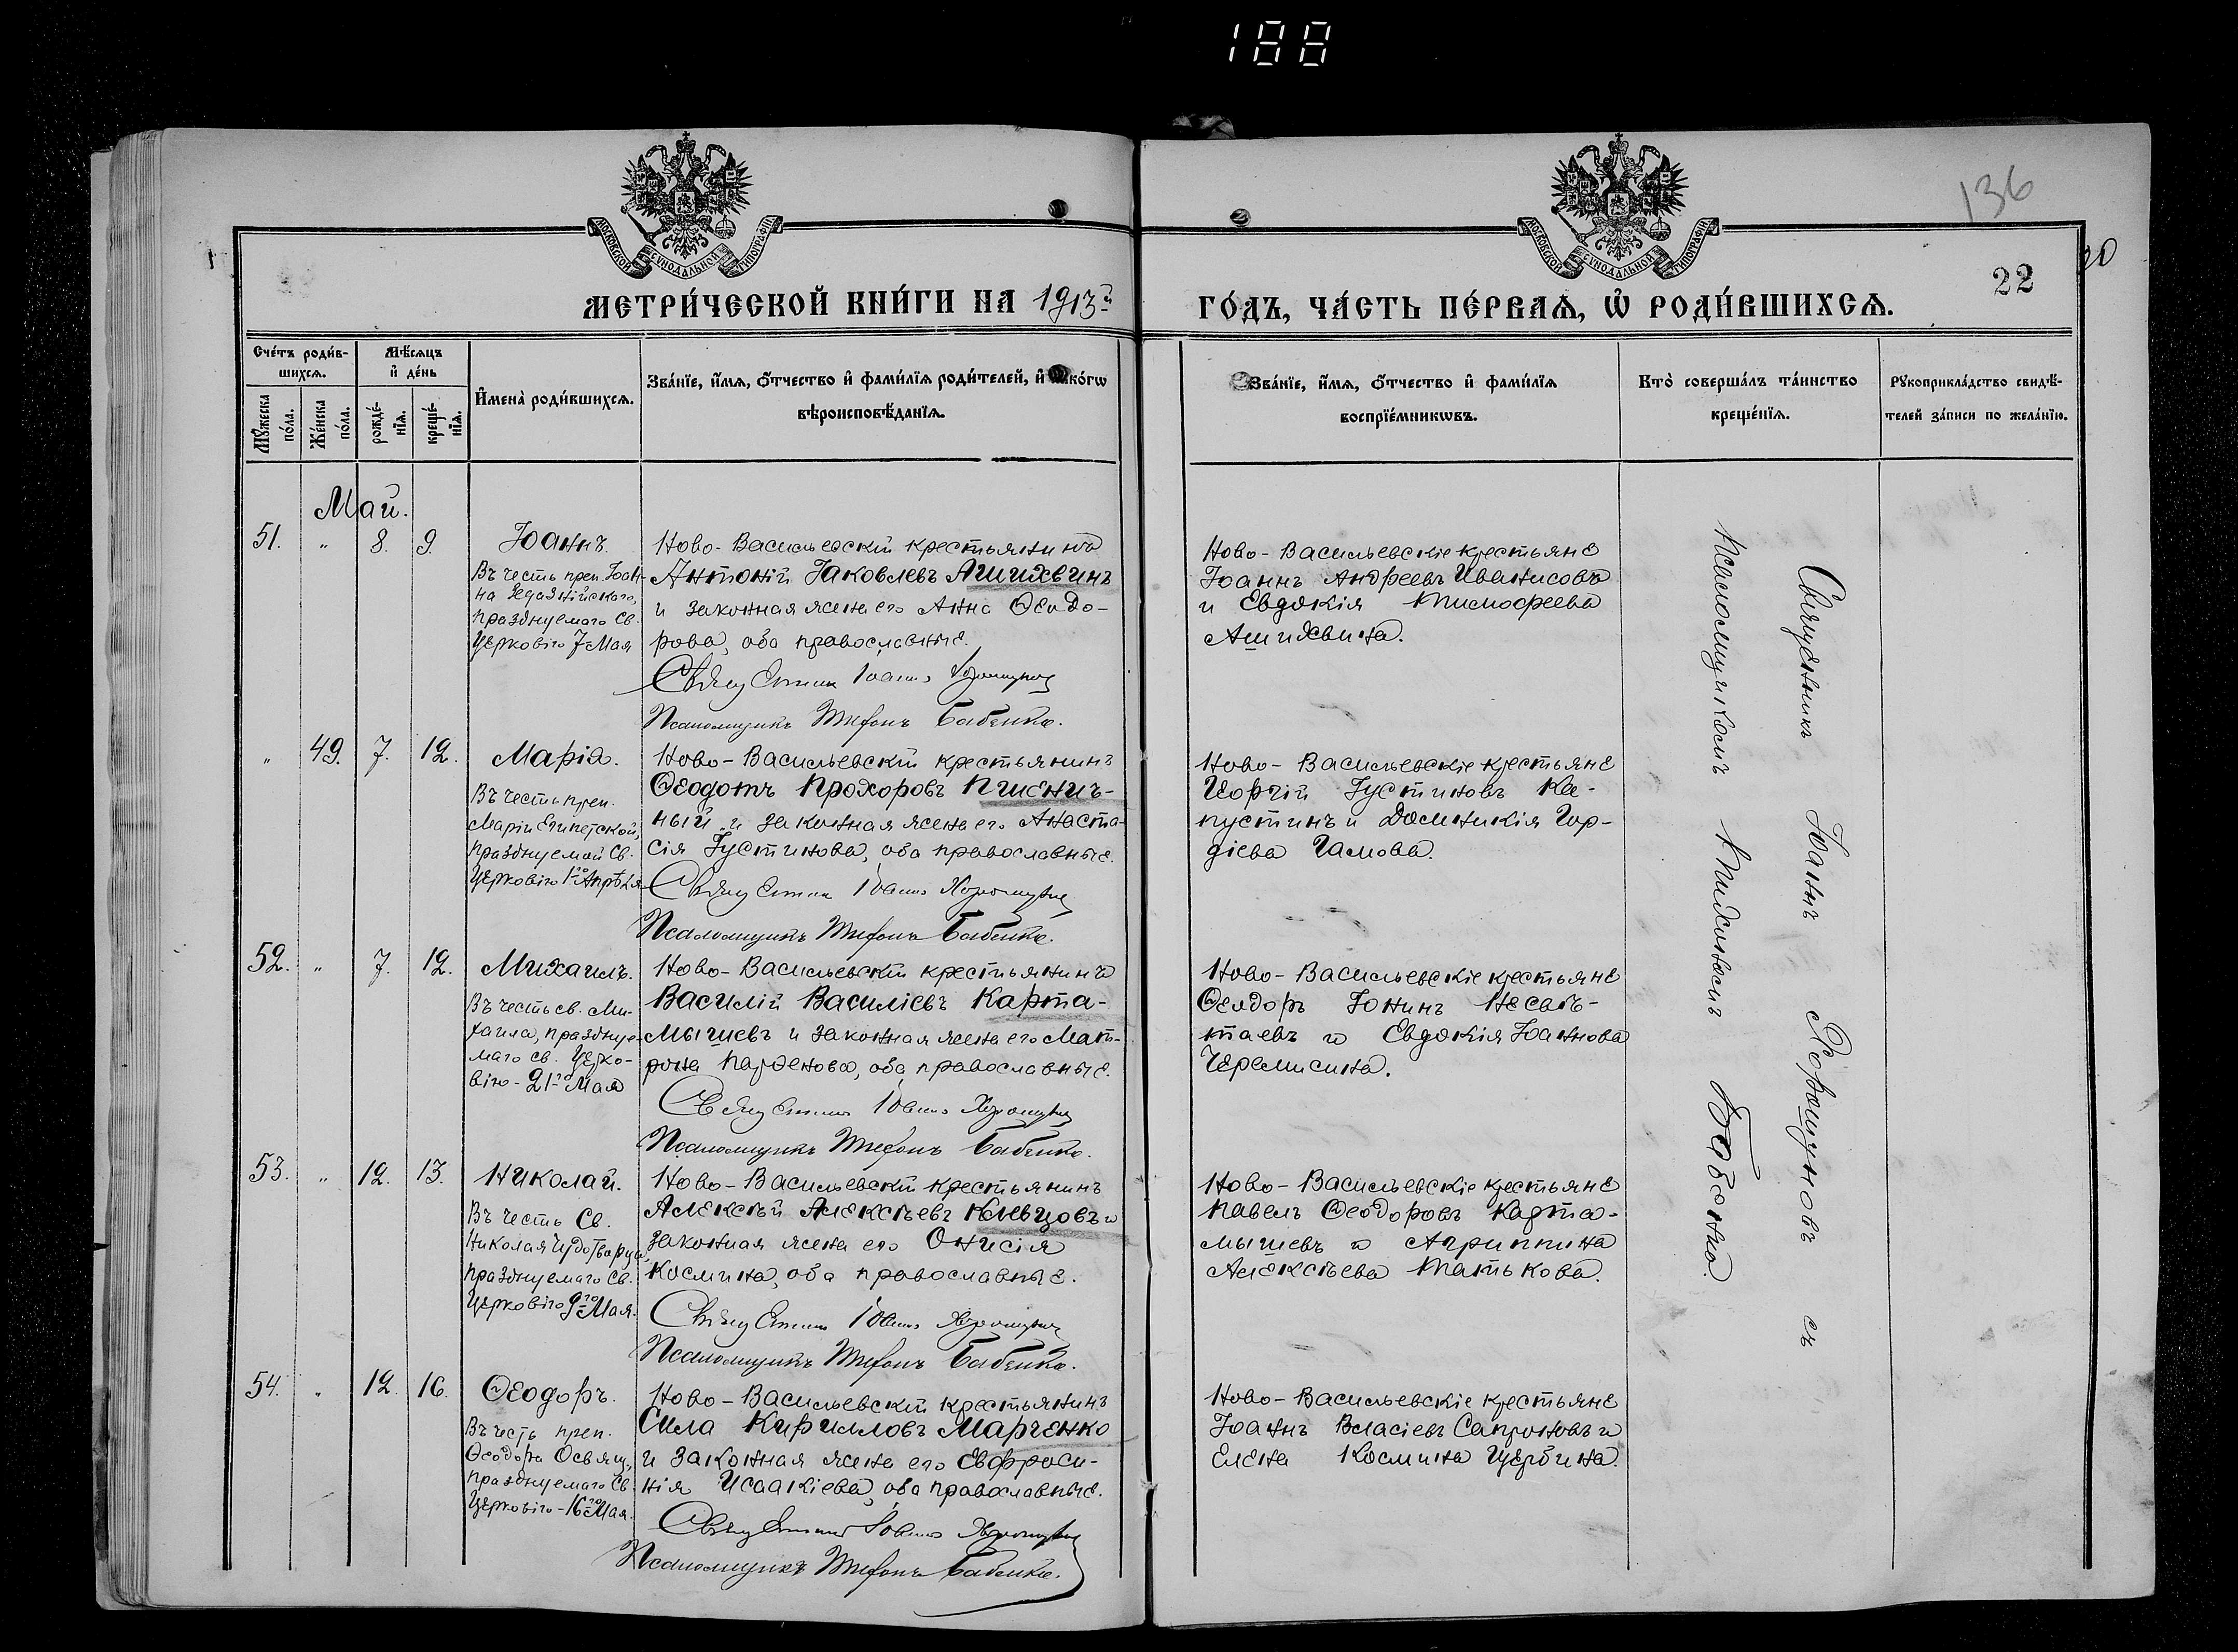 188
136
20
22
МОСКОВСКОЙ СѴНОДАЛЬНОЙ ТИПОГРАФІИ
МОСКОВСКОЙ СѴНОДАЛЬНОЙ ТИПОГРАФІИ
МЕТРИ́ЧЕСКОЙ КНИ́ГИ НА 1913й
ГО́ДЪ, ЧА́СТЬ ПЕ́РВАѦ, Ѡ҆ РОДИ́ВШИХСѦ.
Сче́тъ роди́в-
шихсѧ.
Мѣ́сѧцъ
и҆ де́нь
Мꙋ́жеска
по́ла.
Же́нска
по́ла.
рожде́-
нїѧ.
креще́-
нїѧ.
И҆мена̀ роди́вшихсѧ.
Зва́нїе, и҆́мѧ, ѻ҆́тчество и҆ фами́лїѧ роди́телей, и҆ како́гѡ
вѣроисповѣ́данїѧ.
Зва́нїе, и҆́мѧ, ѻ҆́тчество и҆ фами́лїѧ
воспрїе́мникѡвъ.
Кто̀ соверша́лъ та́инство
креще́нїѧ.
Рꙋкоприкла́дство свидѣ́-
телей за́писи по жела́нїю.
Май.
51. „ 8. 9. Іоаннъ.
Въ честь преп. Іоан-
на Зедазнійскаго,
празднуемаго Св.
Церковію 7 Мая
Ново-Васильевскій крестьянинъ
Антоній Іаковлевъ Ашихвинъ
и законная жена его Анна Ѳеодо-
рова, оба православные.
Священникъ Іоаннъ Хорошуновъ
Псаломщикъ Тихонъ Бабенко.
Ново-Васильевскіе крестьяне
Іоаннъ Андреевъ Иванисовъ
и Евдокія Тимофеева
Ашихвина.
„ 49. 7. 12. Марія.
Въ честь преп.
Маріи Египетской,
празднуемой Св.
Церковію 1го Апрѣля
Ново-Васильевскій крестьянинъ
Ѳеодотъ Прохоровъ Пшенич-
ный и законная жена его Анаста-
сія Іустинова, оба православные.
Священникъ Іоаннъ Хорошуновъ
Псаломщикъ Тихонъ Бабенко.
Ново-Васильевскіе крестьяне
Георгій Іустиновъ Ка-
пустинъ и Доминикія Гор-
діева Гамова.
52. „ 7. 12. Михаилъ.
Въ честь св. Ми-
хаила, праздnуе-
маго св. Церко-
вію - 21го Мая
Ново-Васильевскій крестьянинъ
Василій Василіевъ Карта-
мышевъ и законная жена его Мат-
рона Парѳенова, оба православные.
Священникъ Іоаннъ Хорошуновъ
Псаломщикъ Тихонъ Бабенко.
Ново-Васильевскіе крестьяне
Ѳеодоръ Іонинъ Несвѣ-
таевъ и Евдокія Іоаннова
Черемисина.
53. „ 12. 13. Николай.
Въ честь Св.
Николая Чудотворца,
празднуемаго Св.
Церковію 9го Мая.
Ново-Васильевскій крестьянинъ
Алексѣй Алексѣевъ Клевцовъ и
законная жена его Онисія
Космина, оба православные.
Священникъ Іоаннъ Хорошуновъ
Псаломщикъ Тихонъ Бабенко.
Ново-Васильевскіе крестьяне
Павелъ Ѳеодоровъ Карта-
мышевъ и Агриппина
Алексѣева Татькова.
54. „ 12. 16. Ѳеодоръ.
Въ честь преп.
Ѳеодора Освящ.,
празднуемаго Св.
Церковію - 16го Мая.
Ново-Васильевскій крестьянинъ
Сила Кирилловъ Марченко
и законная жена его Евфроси-
нія Исаакіева, оба православные.
Священникъ Іоаннъ Хорошуновъ
Псаломщикъ Тихонъ Бабенко.
Ново-Васильевскіе крестьяне
Іоаннъ Власіевъ Сапроновъ и
Елена Космина Щербина.
Священникъ Іоаннъ Хорошуновъ съ
Псаломщикомъ Тихономъ Бабенко.